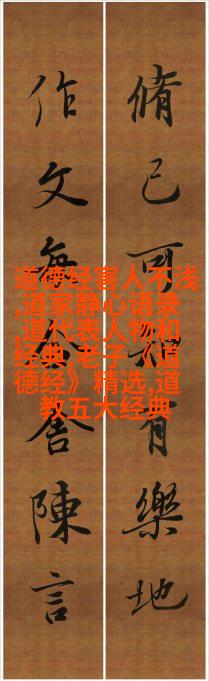 脩己可有樂地
作文無舍陳言
道德经害人不浅
,道家静心语录
,道代表人物和
经典,老子《道
德经》精选,道
教五大经典